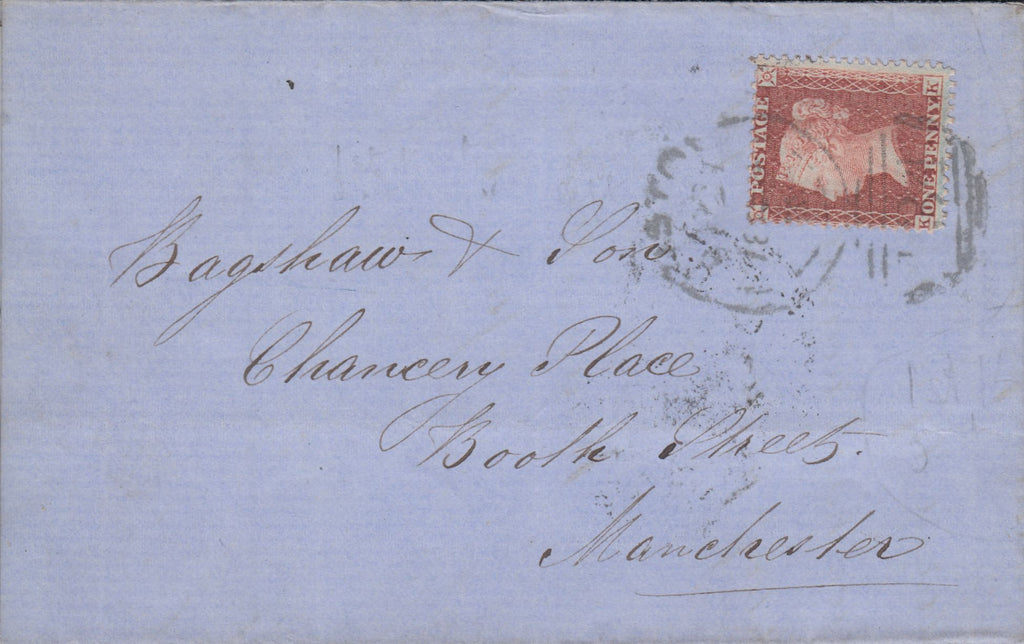 Bagshaw & Son
Chancery Place
Booth Street.
Manchester
POSTAGE
ONE PENNY
K
K